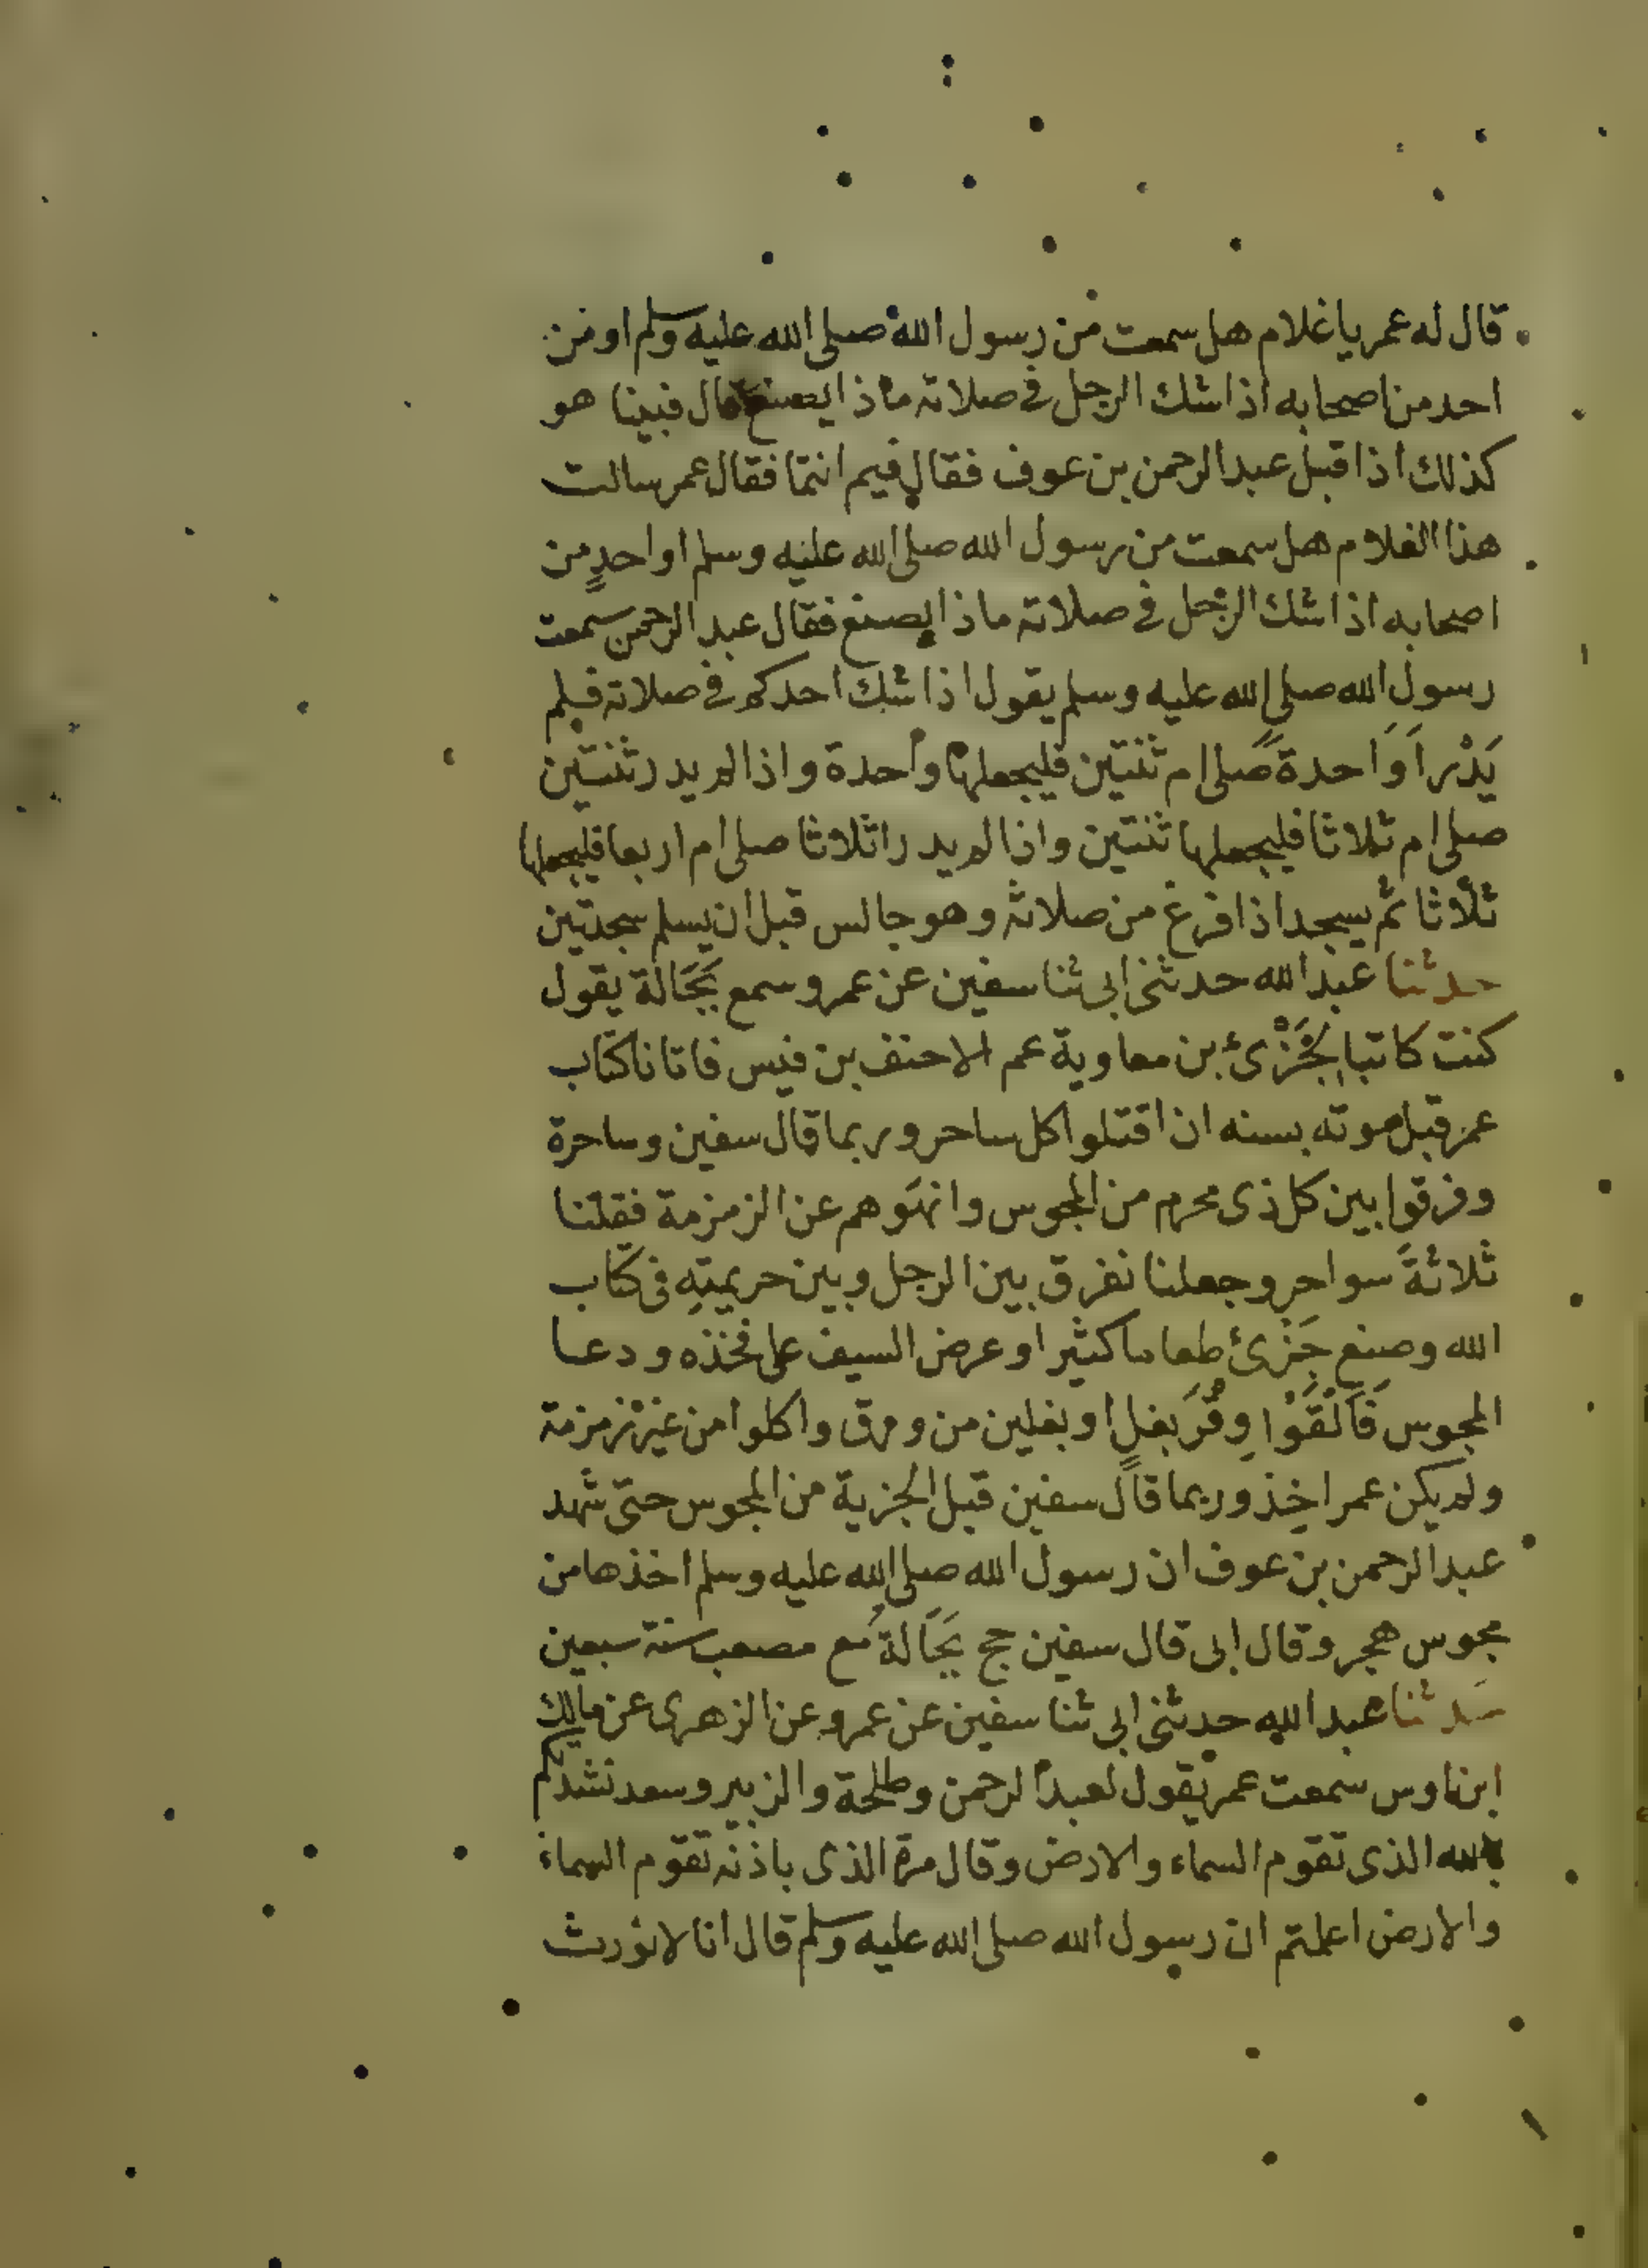 قال له عمر يا غلام هل سمعت من رسول الله صلى الله عليه وسلم او من
احد من اصحابه اذا شك الرجل في صلاته ماذا يصنع قال فبينا هو
كذلك اذا قبل عبد الرحمن بن عوف فقال فيم انتما فقال عمر سالت
هذا الغلام هل سمعت من رسول الله صلى الله عليه وسلم او احدٍ من
اصحابه اذا شك الرجل في صلاته ماذا يصنع فقال عبد الرحمن سمعت
رسول الله صلى الله عليه وسلم يقول اذا شك احدكم في صلاته فلم
يَدْرِ اَوَاحدة صلى ام ثنتين فليجعلها واحدة واذا لم يدر ثنتين
صلى ام ثلاثا فليجعلها ثنتين واذا لم يدر اثلاثا صلى ام اربعا فليجعلها
ثلاثا ثم يسجد اذا فرغ من صلاته وهو جالس قبل ان يسلم سجدتين
حدثنا عبد الله حدثنى ابى ثنا سفين عن عمرو سمع بَجَالة يقول
كنت كاتبا لجَزْئ بن معاوية عم الاحنف بن قيس فاتانا كتاب
عمر قبل موته بسنه ان اقتلوا كل ساحر وربما قال سفين وساحرة
وفرقوا بين كل ذى محرم من المجوس وانهَوهم عن الزمزمة فقتلنا
ثلاثةَ سواحر وجعلنا نفرق بين الرجل وبين حريمتِه فى كتاب
الله وصنع جَزْئ طعاما كثيرا وعرض السيف على فخذه ودعا
المجوس فَاَلْقَوْا وِقْرَ بغلٍ او بغلين من ورق واكلوا من غير زمزمة
ولم يكن عمر اخذ وربما قال سفين قبل الجزية من المجوس حتى شهد
عبد الرحمن بن عوف ان رسول الله صلى الله عليه وسلم اخذها من
مجوس هجر وقال ابى قال سفين حج بَجَالة مع مصعب سنة سبعين
حدثنا عبد الله حدثنى ابى ثنا سفين عن عمرو عن الزهرى عن مالك
ابن اوس سمعت عمر يقول لعبد الرحمن وطلحة والزبير وسعد نشدتكم
بالله الذى تقوم السماء والارض وقال مرة الذى باذنه تقوم السماء
والارض اعلمتم ان رسول الله صلى الله عليه وسلم قال انا لا نورث